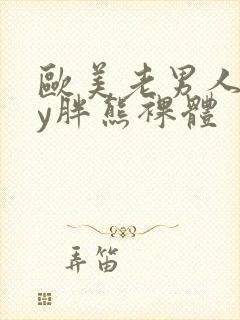 歐美老男人
y胖熊裸體
弄笛